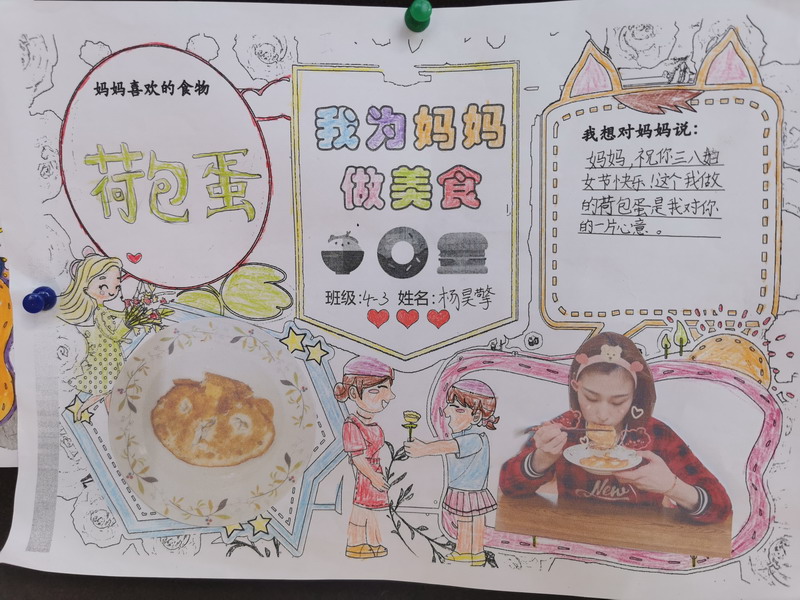 妈妈喜欢的食物
荷包蛋
我为妈妈
做美食
班级:4-3 姓名:杨昊擎
我想对妈妈说:
妈妈,祝你三八妇
女节快乐!这个我做
的荷包蛋是我对你
的一片心意。
New